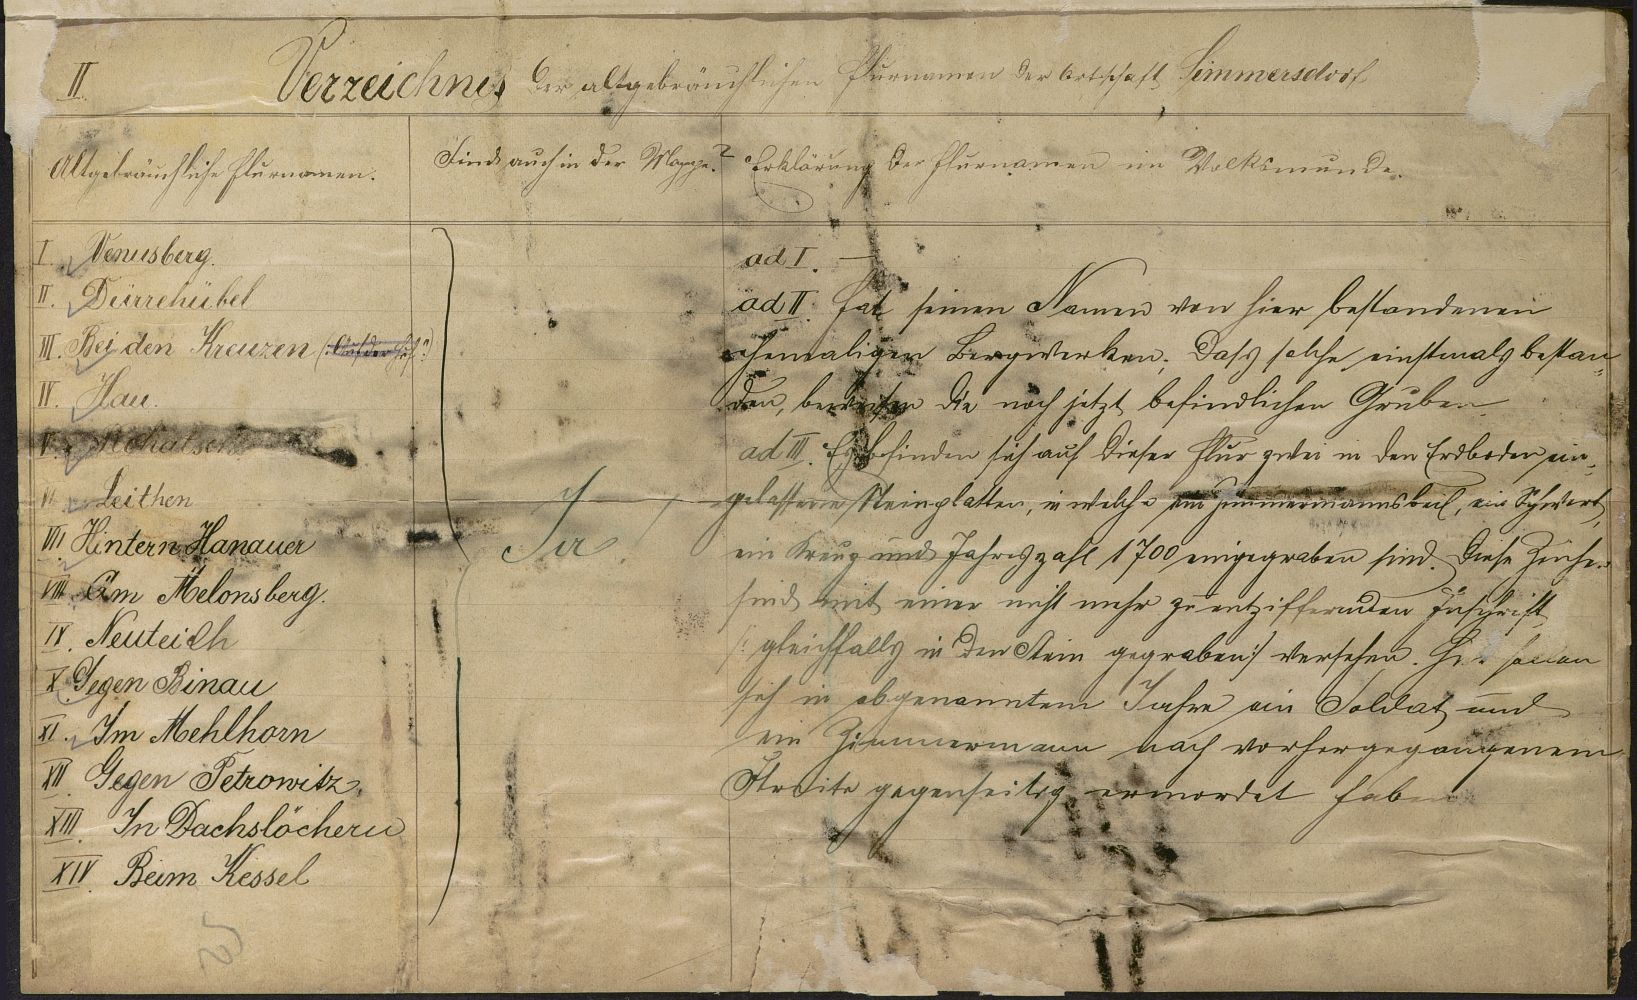 II. Verzeichnis der altgebräuchlichen Flurnamen der Ortschaft Simmersdorf
Altgebräuchliche Flurnamen.
Sind auch in der Mappe?
Erklärung der Flurnamen im Volksmunde.
I. Venusberg.
II. Dürrehübel
III. Bei den Kreuzen
IV. Hau.
V.
VI. Leithen
VII. Hintern Hanauer
VIII. Am Melonsberg.
IX. Neuteich
X. Gegen Binau
XI. Im Mehlhorn
XII. Gegen Petrowitz.
XIII. In Dachslöchern
XIV. Beim Kessel
Ja
ad I. —
ad II. Hat seinen Namen von hier bestandenen
ehemaligen Bergwerken; dass solche einstmals bestan-
den, beweisen die noch jetzt befindlichen Gruben.
ad III. Es befinden sich auf dieser Flur zwei in den Erdboden ein-
gelassene Steinplatten, in welche ein Zimmermannsbeil, ein Schwert,
ein Kreuz und Jahreszahl 1700 eingegraben sind. Diese Zeichen
sind mit einer nicht mehr zu entziffernden Inschrift
(: gleichfalls in den Stein gegraben :) versehen. Hier sollen
sich in obgenanntem Jahre ein Soldat und
ein Zimmermann nach vorhergegangenem
Streite gegenseitig ermordet haben